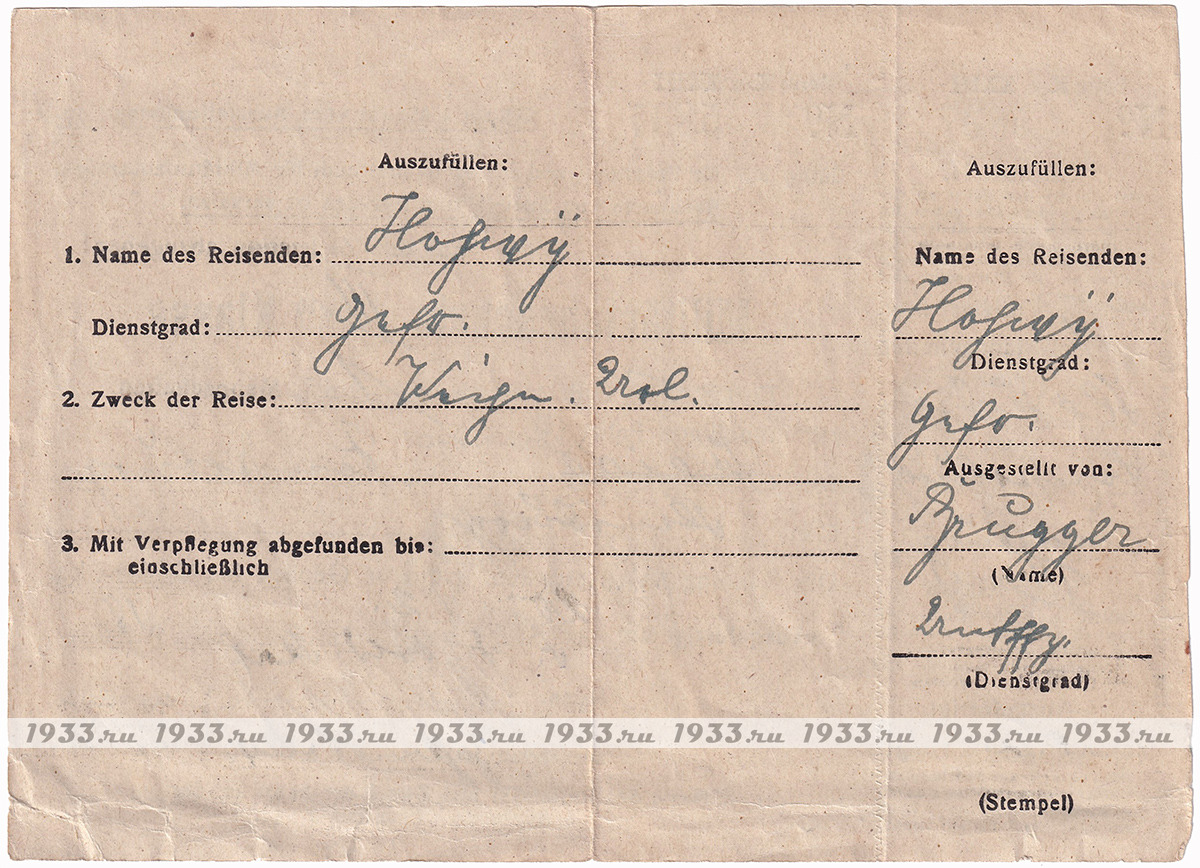 Auszufüllen:
1. Name des Reisenden: Hohwÿ
Dienstgrad: Gefr.
2. Zweck der Reise: Weihn. Url.
3. Mit Verpflegung abgefunden bis:
einschließlich
Auszufüllen:
Name des Reisenden:
Hohwÿ
Dienstgrad:
Gefr.
Ausgestellt von:
Brugger
(Name)
(Dienstgrad)
1933.ru 1933.ru 1933.ru 1933.ru 1933.ru 1933.ru 1933.ru 1933.ru 1933.ru
(Stempel)